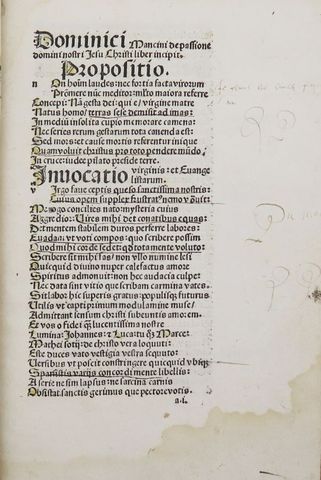 Dominici Mancini de passione
domini nostri Jesu Christi liber incipit.
Propositio.
n On hoim laudes: nec fortia facta virorum
Promere nuc meditor: mihi maiora referre
Concepi: Na gesta dei: qui e virgine matre
Natus homo: terras sese demisit ad imas:
In mediu insolita cupio memorare camena:
Nec series rerum gestarum tota canenda est:
Sed mors: et cause mortis referentur iniquae
Quam voluit christus pro toto pendere mudo
In cruce: iudee pilato preside terre.
Invocatio virginis: et Euange
listarum.
v Irgo fave ceptis queso sanctissima nostris:
Cuius opem supplex frustrat nemo
Me rogo concilies nato: mysteria cuius
Aggredior: Vires mihi det conatibus equas:
Det mentem stabilem duros perferre labores:
Euadam vt voti compos: quo scribere possim
Quod mihi cor de fedet quod tota mente voluto:
Scribere sit mihi fas: non vllo numine lesi
Quicquid divino nuper calefactus amore
Spiritus admonuit: non hec audacia culpet
Nec data sint vitio que scribam carmina vates.
Sit labor hic superis gratus: populisque futurus
Utilis vt captiprimum modulamine muse
Admittant sensum christi subeuntis amorem.
Et vos o fidei lucentissima nostre
Lumina: Johannes: Lucas: tu Marce:
Mathei soti: de christo vera loquuti:
Este duces vato vestigia vestra sequuto:
Versibus vt poscit constringere quicquid vbique
Sparsistis variis concordi mente libellis:
A serie ne sim lapsus: ne sarcina carnis
Obsistat sanctis gerimus que pectore votis.
a.i.